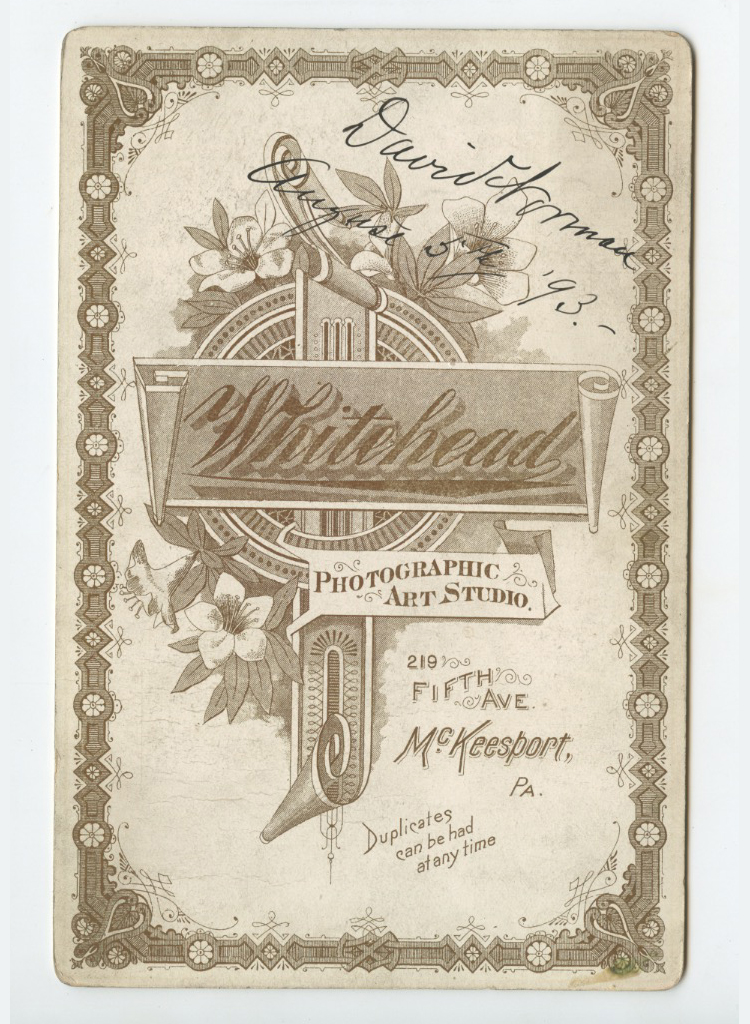 David Norman
August 5th, '93.-
Whitehead
PHOTOGRAPHIC
ART STUDIO.
219
FIFTH
AVE.
McKeesport,
PA.
Duplicates
can be had
at any time